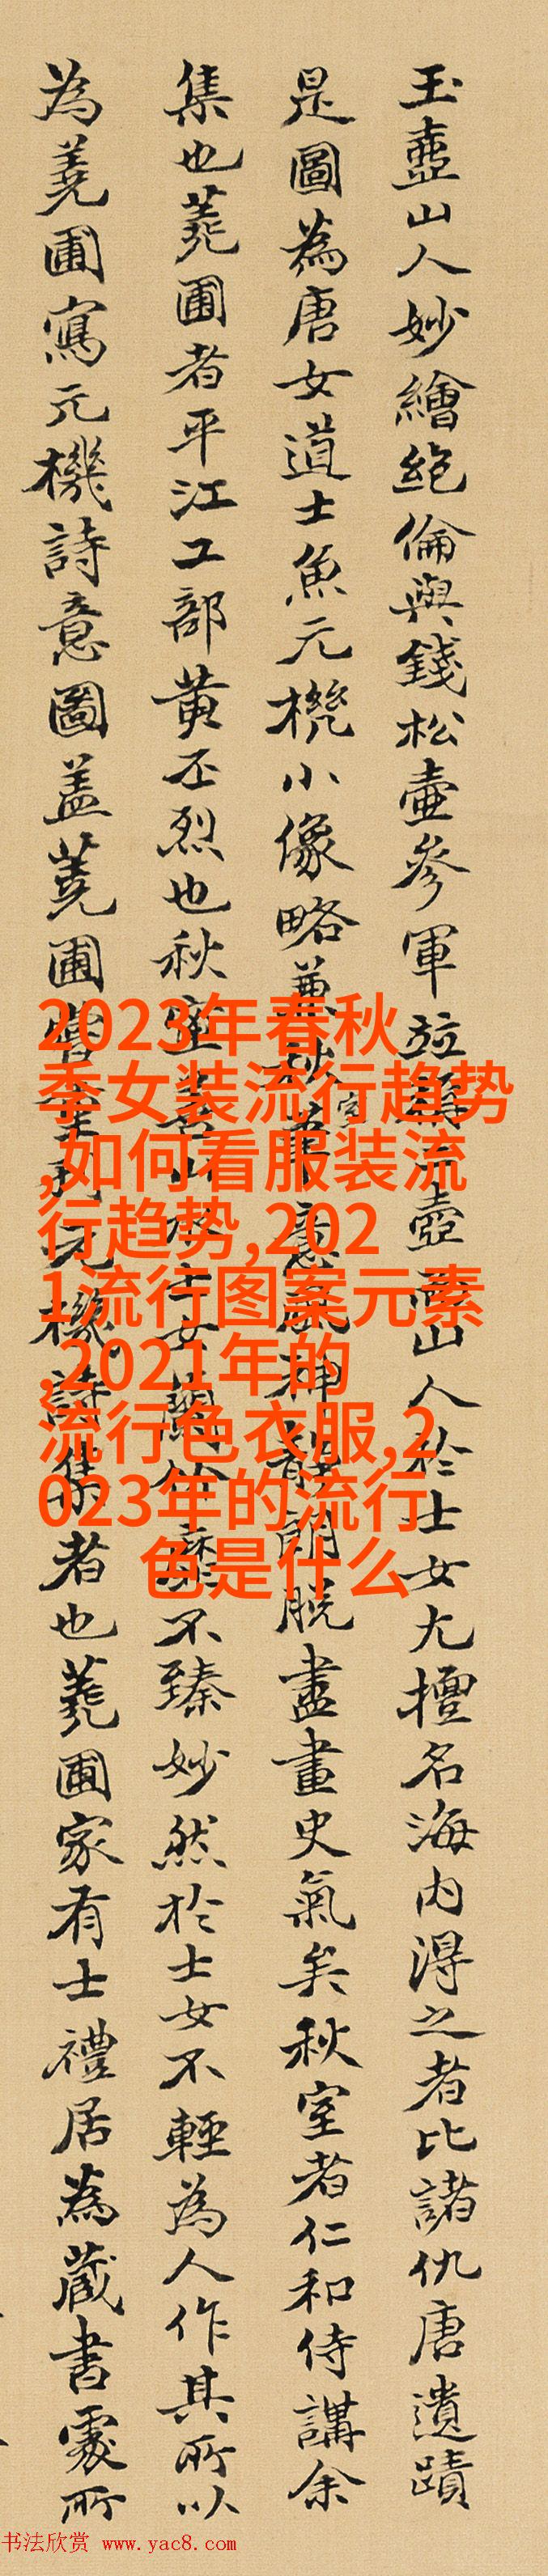 玉壺山人妙繪絶倫與錢松壺參軍並稱兩壺而山人於士女尤擅名海内淂之者比諸仇唐遺蹟
是圖為唐女道士魚元機小像略兼秋室筆意風神諧朗脱盡畫史氣矣秋室者仁和侍講余
集也蕘圃者平江工部黄丕烈也秋室畫山水士女蘭竹靡不臻妙然於士女不輕為人作其所以
為蕘圃寫元機詩意圖盖蕘圃嘗元機詩集者也蕘圃家有士禮居為藏書處所
2023年春秋
季女装流行趋势
,如何看服装流
行趋势,202
1流行图案元素
,2021年的
流行色衣服,2
023年的流行
色是什么
书法欣赏 www.yac8.com